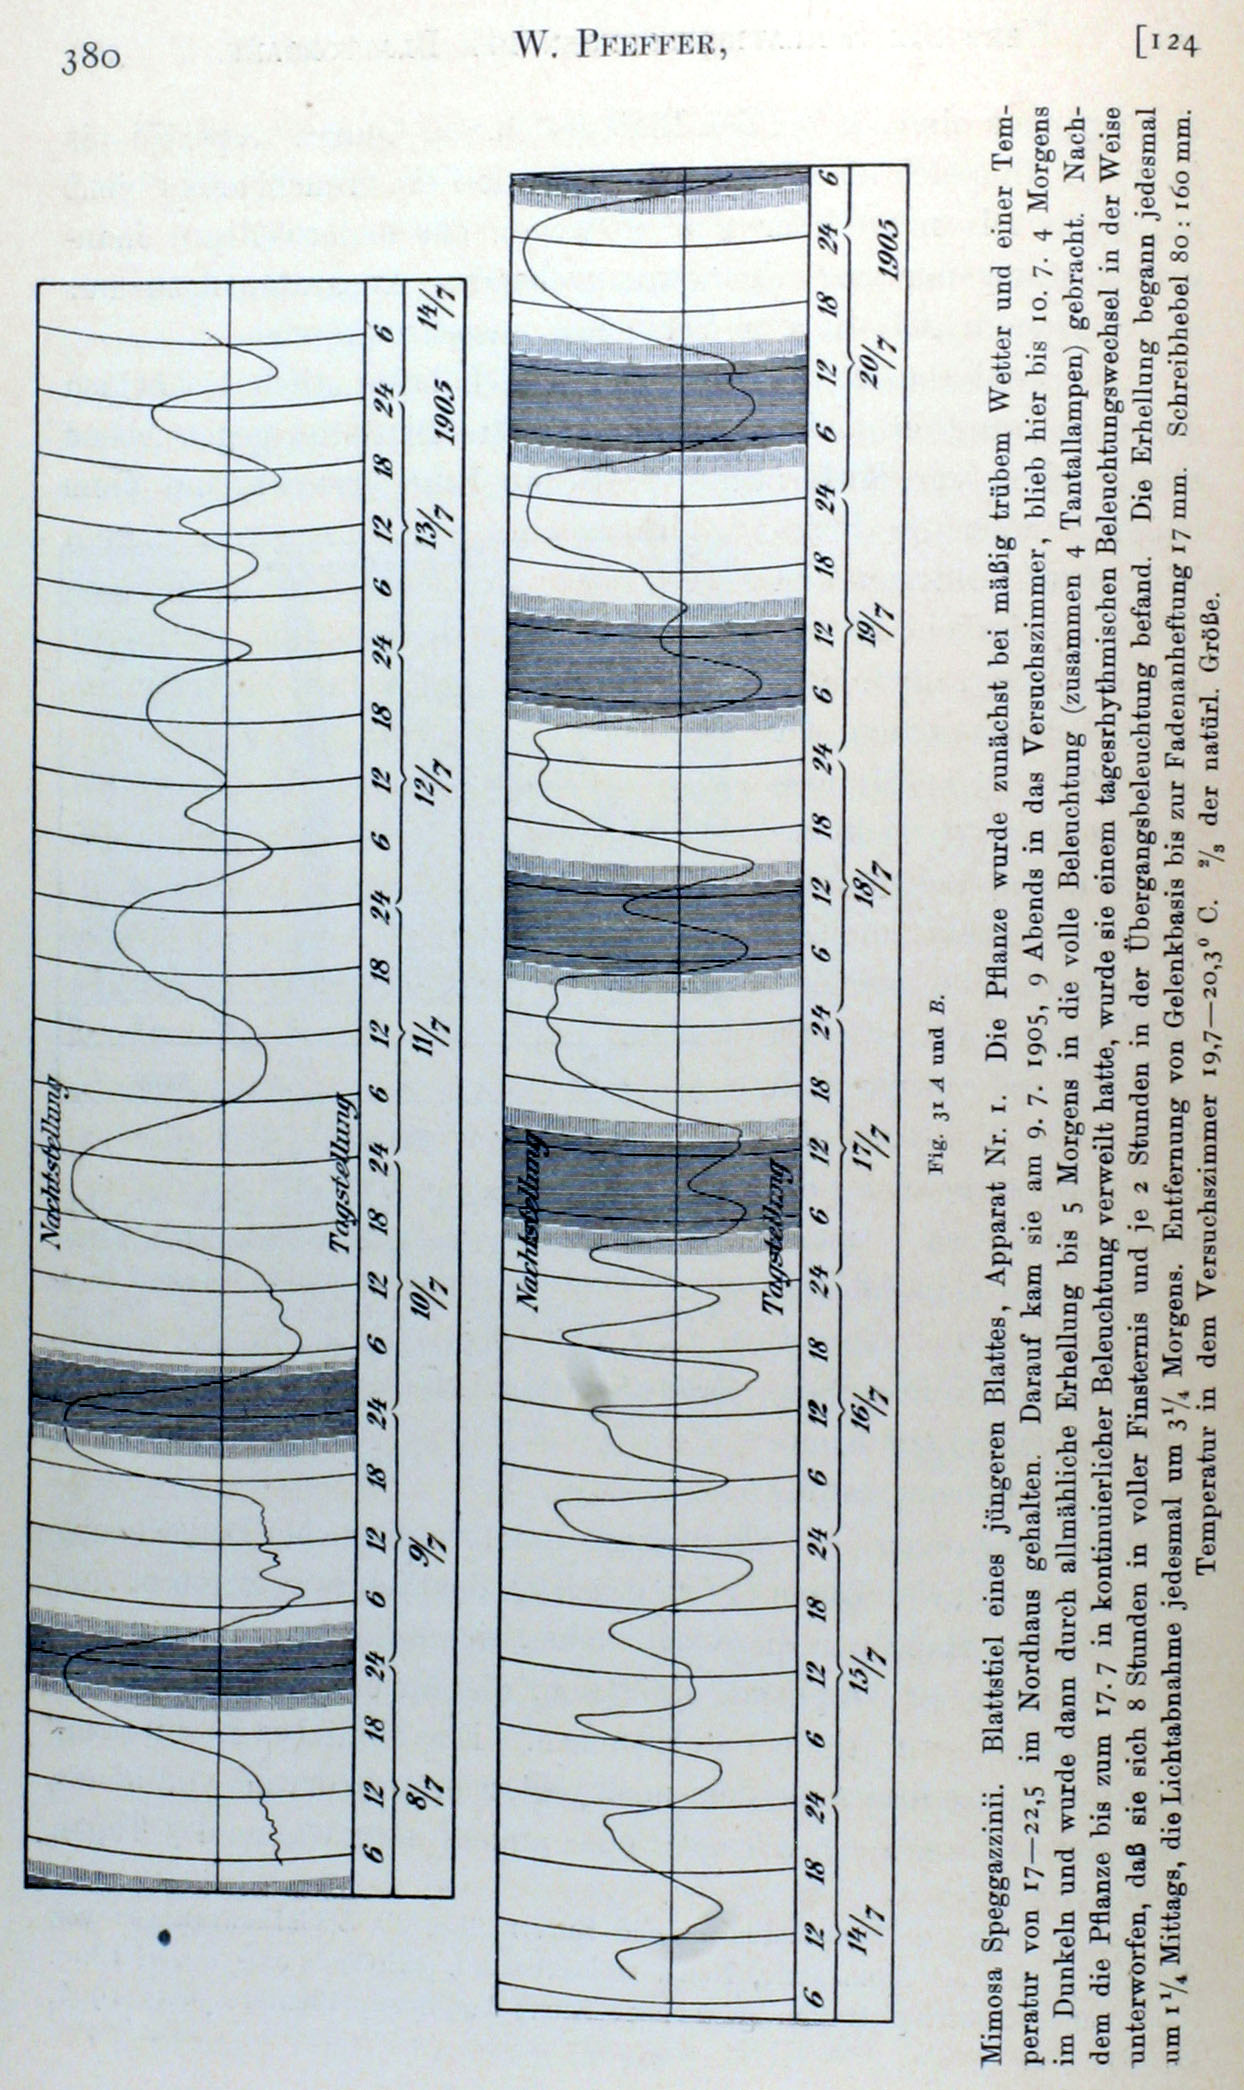 380
W. PFEFFER,
[124
Nachtstellung
Tagstellung
6 12 18 24 6 12 18 24 6 12 18 24 6 12 18 24 6 12 18 24 6 12 18 24 6
8/7 9/7 10/7 11/7 12/7 13/7 1905 14/7
Nachtstellung
Tagstellung
6 12 18 24 6 12 18 24 6 12 18 24 6 12 18 24 6 12 18 24 6 12 18 24 6 12 18 24 6
14/7 15/7 16/7 17/7 18/7 19/7 20/7 1905
Fig. 31 A und B.
Mimosa Speggazzinii. Blattstiel eines jüngeren Blattes, Apparat Nr. 1. Die Pflanze wurde zunächst bei mäßig trübem Wetter und einer Tem-
peratur von 17—22,5 im Nordhaus gehalten. Darauf kam sie am 9. 7. 1905, 9 Abends in das Versuchszimmer, blieb hier bis 10. 7. 4 Morgens
im Dunkeln und wurde dann durch allmähliche Erhellung bis 5 Morgens in die volle Beleuchtung (zusammen 4 Tantallampen) gebracht. Nach-
dem die Pflanze bis zum 17. 7 in kontinuierlicher Beleuchtung verweilt hatte, wurde sie einem tagesrhythmischen Beleuchtungswechsel in der Weise
unterworfen, daß sie sich 8 Stunden in voller Finsternis und je 2 Stunden in der Übergangsbeleuchtung befand. Die Erhellung begann jedesmal
um 1¼ Mittags, die Lichtabnahme jedesmal um 3¼ Morgens. Entfernung von Gelenkbasis bis zur Fadenanheftung 17 mm. Schreibhebel 80 : 160 mm.
Temperatur in dem Versuchszimmer 19,7—20,3° C. ²/₃ der natürl. Größe.